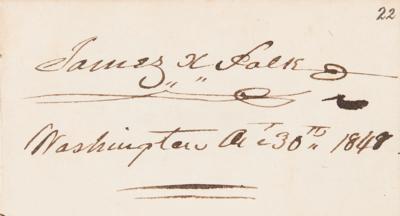 22
James K Polk
Washington Oct 30th 1848